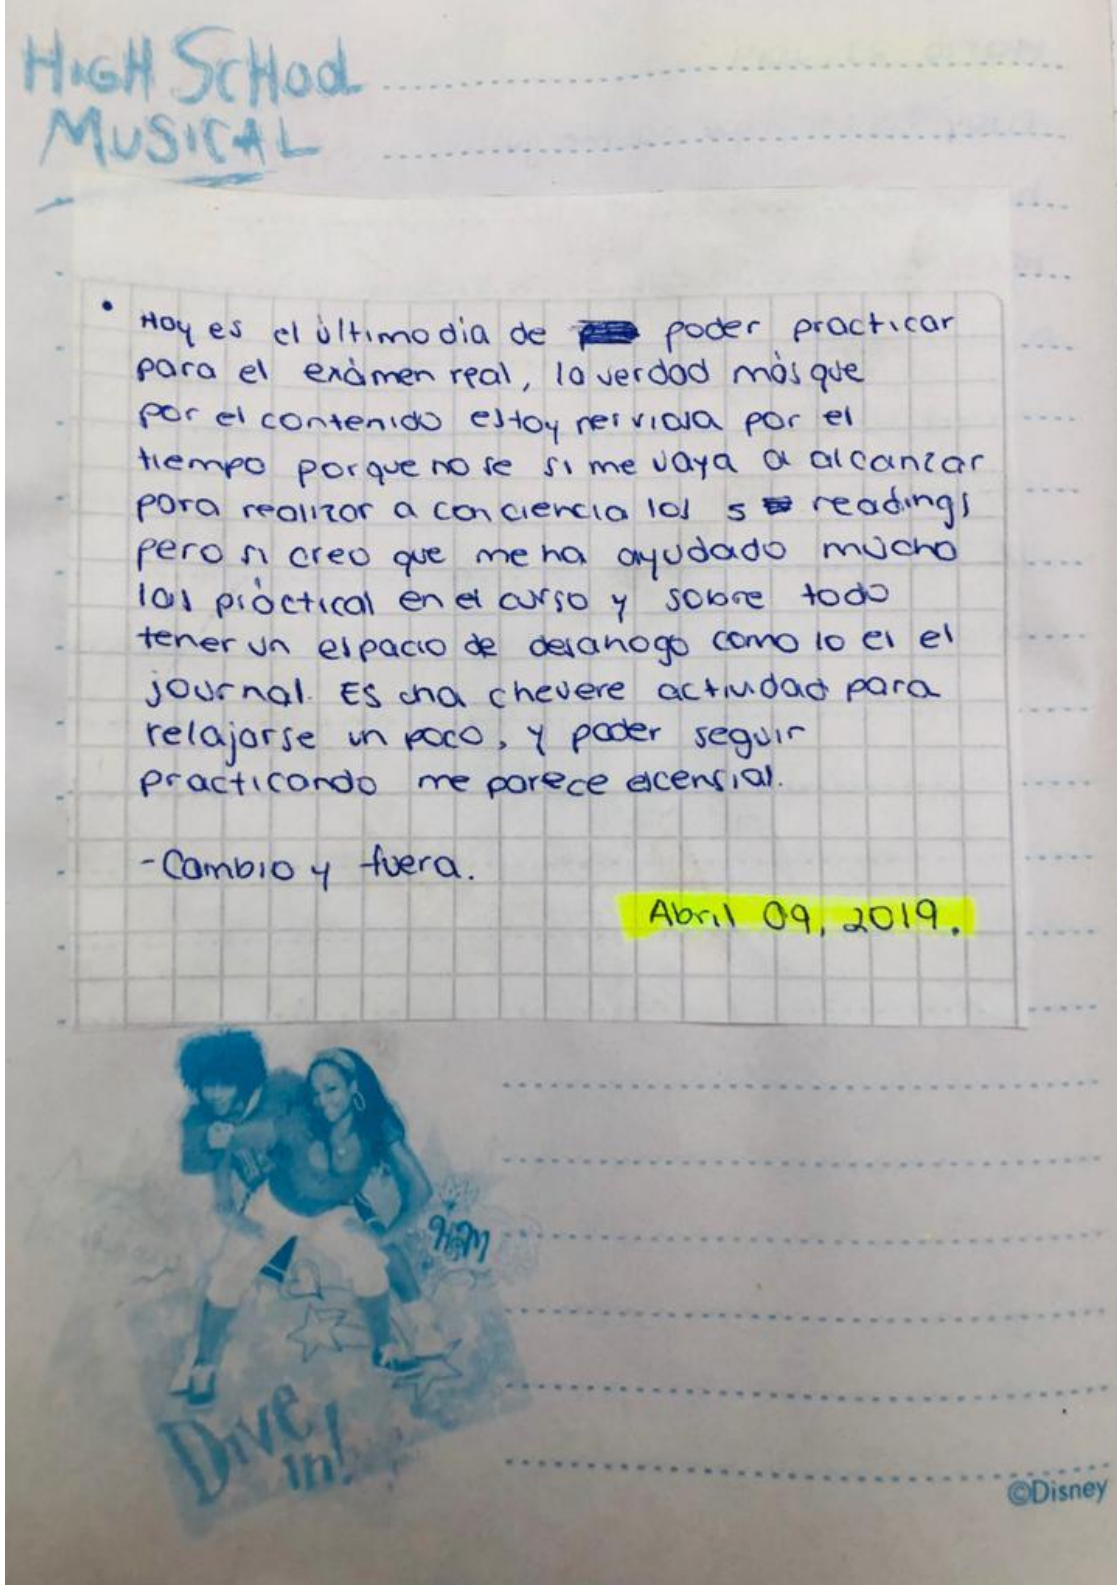 HIGH SCHOOL
MUSICAL
• Hoy es el último dia de poder practicar
para el exámen real, la verdad más que
por el contenido estoy nerviosa por el
tiempo porque no se si me vaya a alcanzar
para realizar a conciencia los 5 readings
pero si creo que me ha ayudado mucho
las prácticas en el curso y sobre todo
tener un espacio de desahogo como lo es el
journal. Es una chevere actividad para
relajarse un poco, y poder seguir
practicando me parece escensial.
-Cambio y fuera.
Abril 09, 2019.
HSM
Dive
in!
©Disney